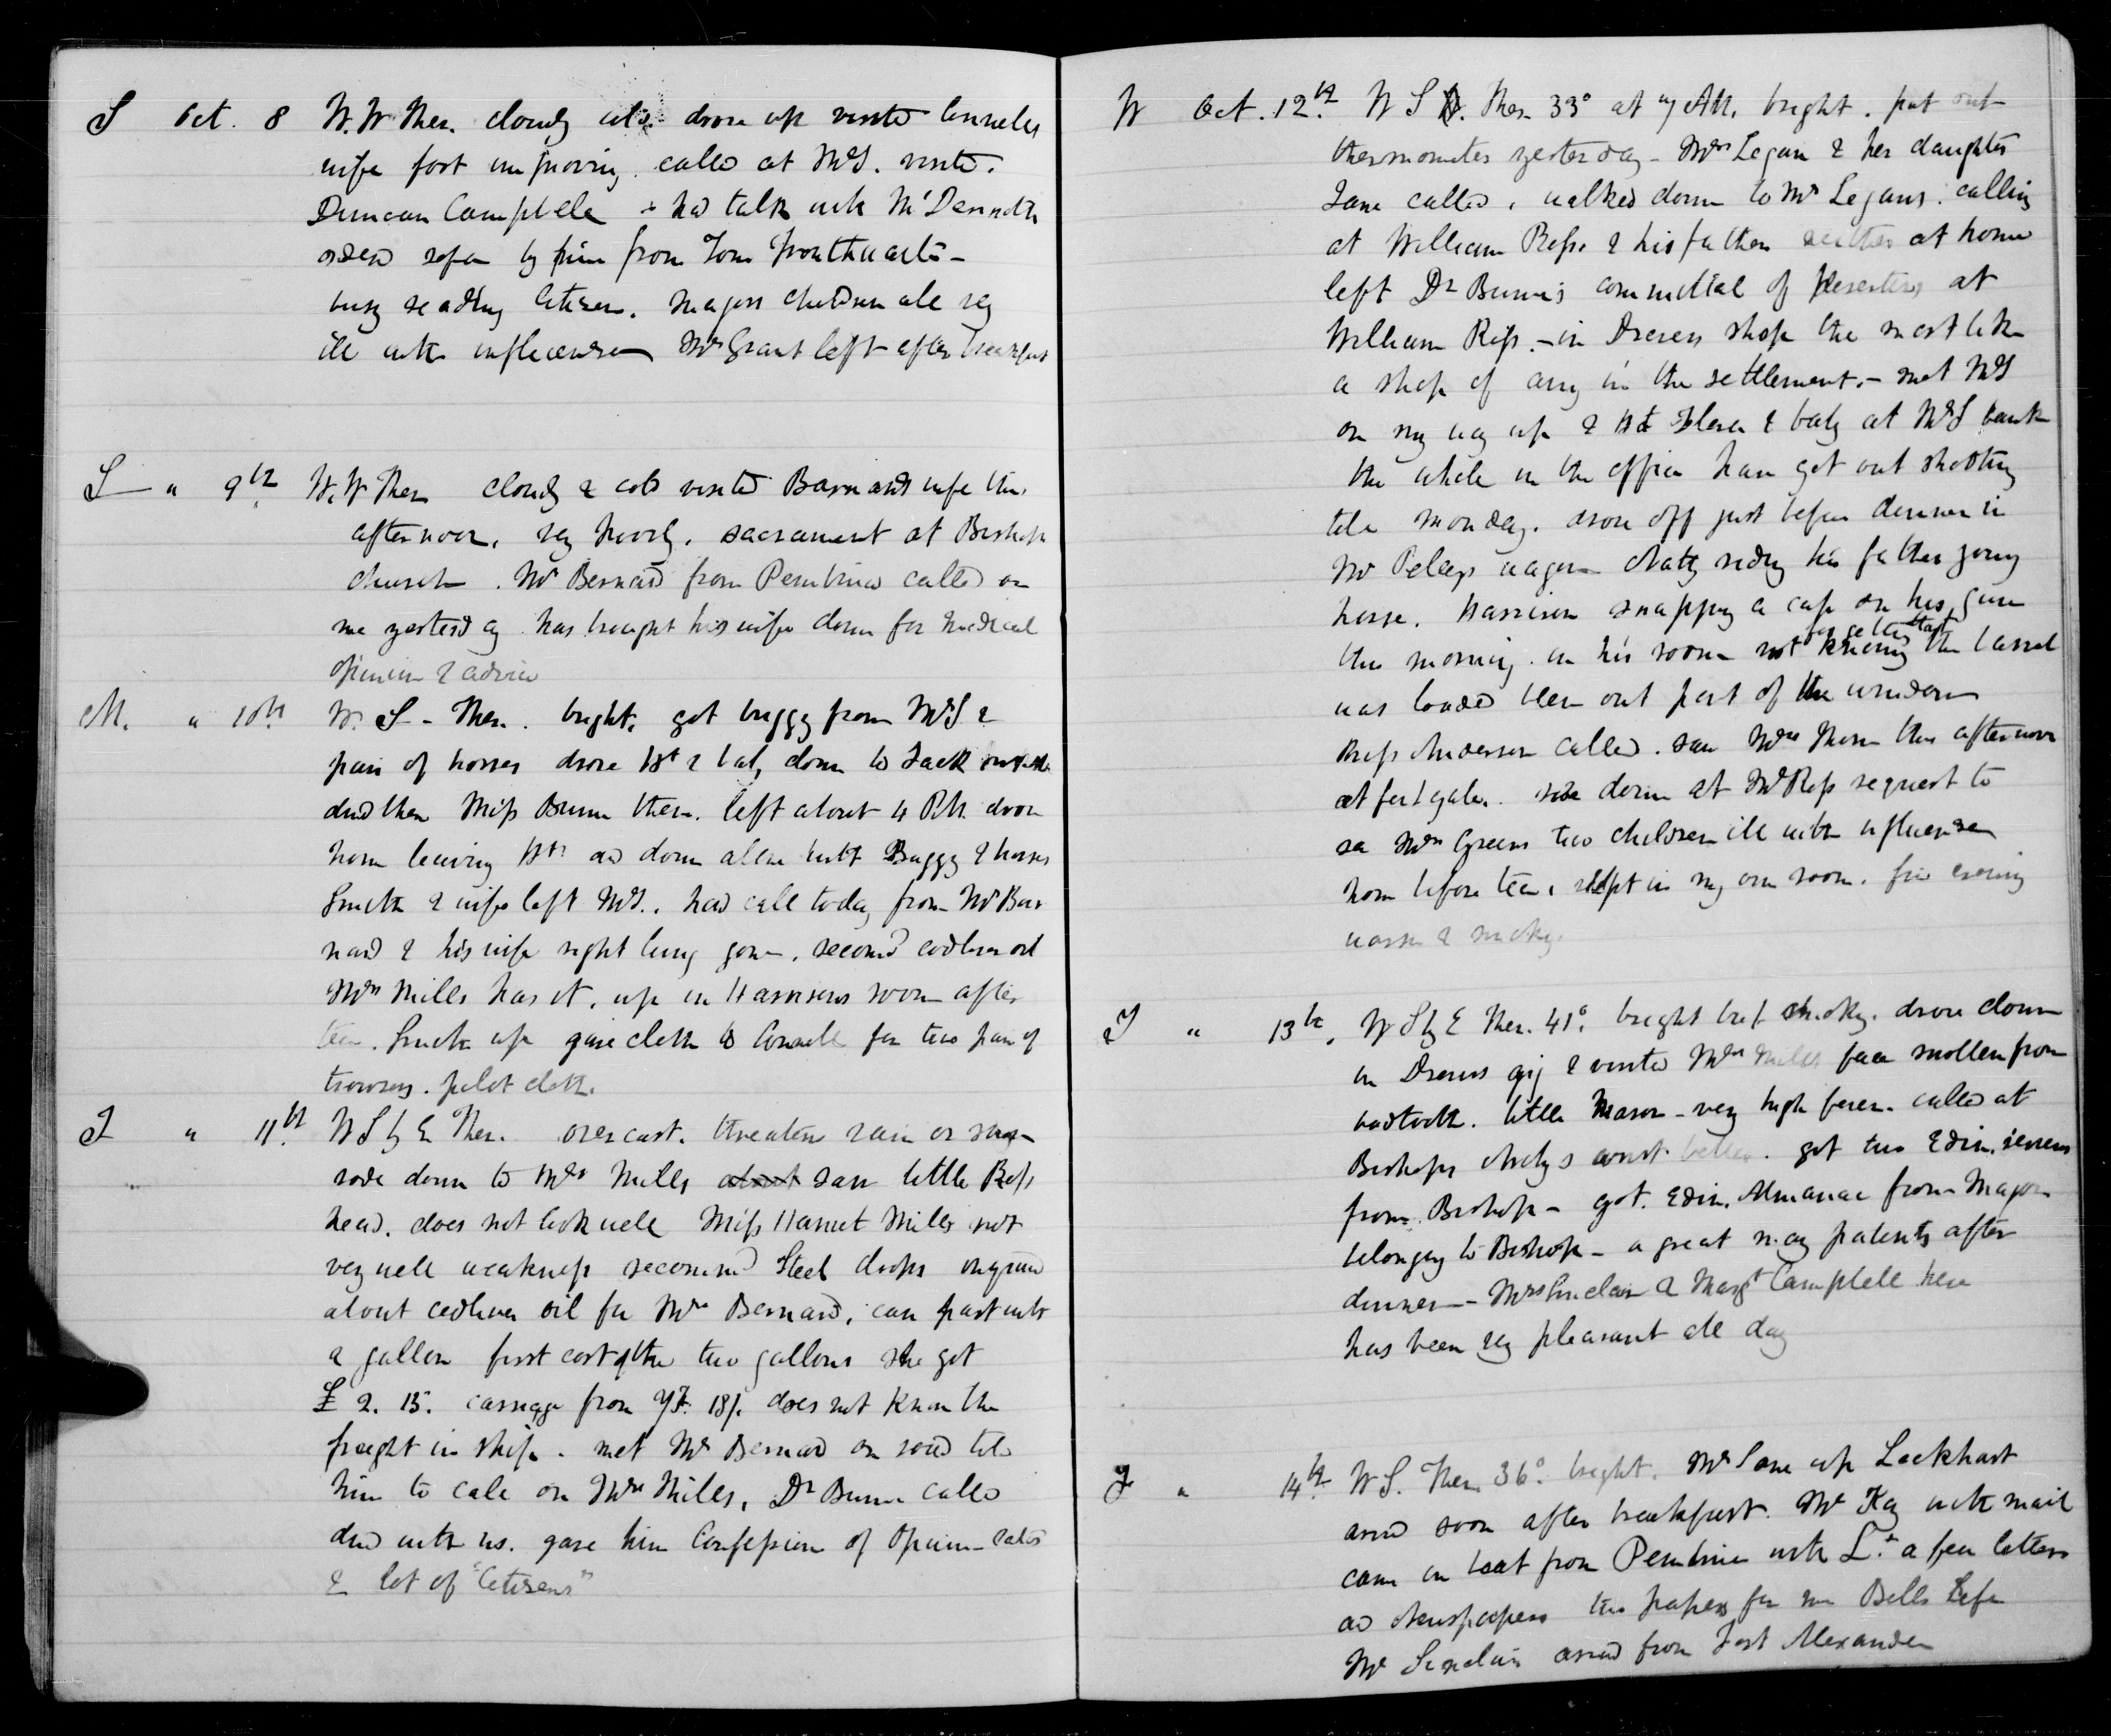 S Oct. 8 W. W Ther. cloudy cold. drove up visited Connells
wife foot improving. called at McD. visited.
Duncan Campbell & had talk with McDermott
ordered sofa by him from Tom
busy reading Citizen. Majors children all very
ill with influenza Mr Grant left after breakfast
S " 9th W. W Ther cloudy & cold visited Barnards wife this
afternoon. very poorly. sacrament at Bishops
church. Mr Bernard from Pembina called on
me yesterday has brought his wife down for medical
opinion & advice
M. " 10th W. S - Ther. bright. got buggy from McD &
pair of horses drove Ht & baby down to
dined there Miss Bunn there. left about 4 P.M. drove
home leaving Ht down all in with Buggy & horses
Smith & wife left McD.. had call today from Mr Bar
nard & his wife right lung gone. recomd codliver oil
Mrs Mills has it. up in Harrisons room after
tea. Smith up gave cloth to Connell for two pair of
trowsers. pilot cloth.
T " 11th W S by E Ther. overcast. threatens rain or snow
rode down to Mrs Mills about saw little Ross
head. does not look well Miss Harriet Mills not
very well weakness recommd Steel drops enquired
about codliver oil for Mrs Bernard, can part with
a gallon first cost of the two gallons she got
£ 2. 15. carriage from YF. 18/. does not know the
freight in ship. met Mr Bernard on road told
him to call on Mrs Mills, Dr Bunn called
dined with us. gave him Confession of Opium-Eater
& lot of "Citizens"
W Oct. 12th W S. Ther 33° at 7 AM. bright. put out
thermometer yesterday - Mrs Logan & her daughter
Jane called, walked down to Mr Logans. calling
at William Ross & his father neither at home
left Dr Bunn's committal of deserters at
William Ross. - in Drevers shop the most like
a shop of any in the settlement. - met McD
on my way up & Ht & baby at McD bank
the whole in the office have got out shooting
till Monday. drove off just before dinner in
Mr Pellys wagon Natty riding his father young
horse. Harrison snapping a cap on his gun
this morning. in his room not knowing forgetting that the barrel
was loaded blew out part of the window
Miss Anderson called. saw Mrs Thom this afternoon
at fort gate. rode down at Mr Ross request to
see Mrs Greens two children ill with influenza
home before tea, slept in my own room. fine evening
warm & smoky.
T " 13th. W S by E Ther. 41°. bright but smoky. drove down
in Drevers gig & visited Mrs Mills face swollen from
bad tooth. little Mason - very high fever. called at
Bishops wrist better. got two Edin. reviews
from Bishop - got. Edin. Almanac from Major
belonging to Bishop - a great many patients after
dinner - Mrs Sinclair & Margt Campbell here
has been very pleasant all day
F " 14th W S. Ther. 36°. bright. Mr Lane up Lockhart
arrivd soon after breakfast. Mr Kay with mail
came in boat from Pembina with Lt. a few letters
and Newspapers two papers for me Bells Life
Mr Sinclair arrivd from Fort Alexander